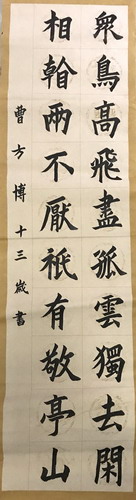 衆鳥高飛盡孤雲獨去閑
相看兩不厭祇有敬亭山
曹方博十三歲書